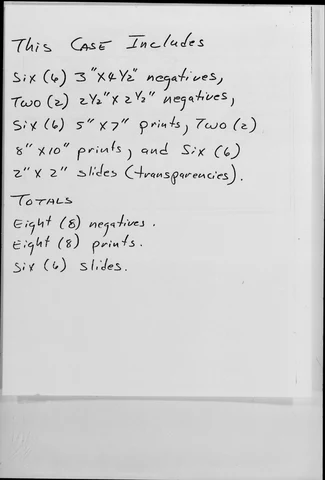 This CASE Includes
Six (6) 3" X 4 1/2" negatives,
Two (2) 2 1/2" X 2 1/2" negatives,
Six (6) 5" X 7" prints, Two (2)
8" X 10" prints, and Six (6)
2" X 2" slides (transparencies).
TOTALS
Eight (8) negatives.
Eight (8) prints.
Six (6) slides.